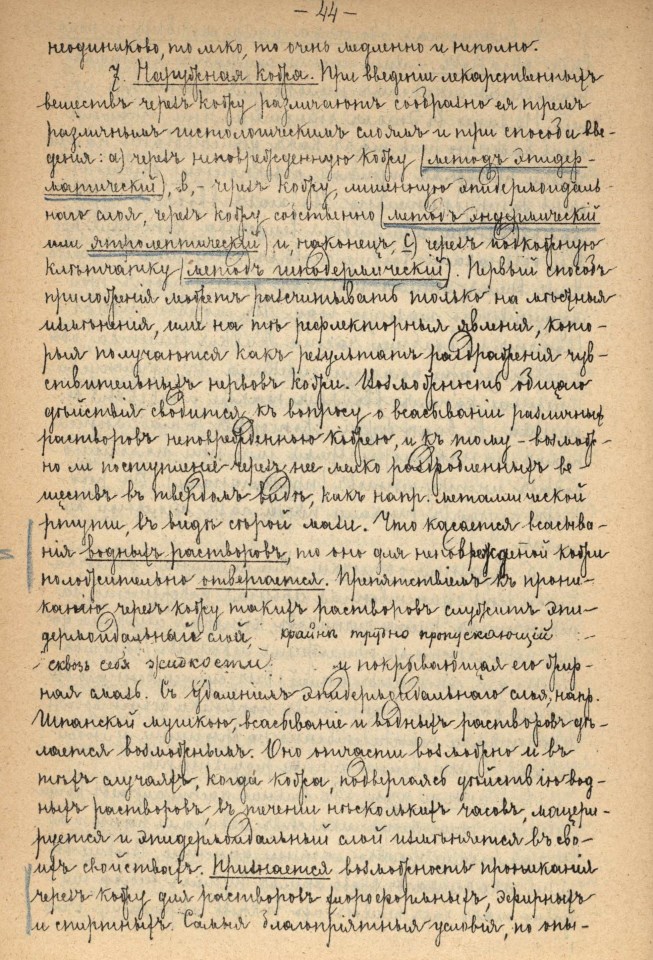 — 44 —
неодинаково, то легко, то очень медленно и неполно.
7. Наружная кожа. При введеніи лекарственныхъ
веществъ черезъ кожу различаютъ сообразно ея тремъ
различнымъ гистологическимъ слоямъ и три способа вве-
денія: а) черезъ неповрежденную кожу (методъ эпидер-
матическій), в,- черезъ кожу, лишенную эпидермоидаль-
наго слоя, черезъ кожу собственно (методъ эндермическій
или ятролептическій) и, наконецъ, с) черезъ подкожную
клѣтчатку (методъ гиподермическій). Первый способъ
приложенія можетъ разсчитывать только на мѣстныя
измѣненія, или на тѣ рефлекторныя явленія, кото-
рыя получаются какъ результатъ раздраженія чув-
ствительныхъ нервовъ кожи. Возможность общаго
дѣйствія сводится къ вопросу о всасываніи различныхъ
растворовъ неповрежденною кожею, и къ тому - возмож-
но ли поступленіе черезъ нее мелко раздробленныхъ ве-
ществъ въ твердомъ видѣ, какъ напр. металлической
ртути, въ видѣ сѣрой мази. Что касается всасыва-
нія водныхъ растворовъ, то оно для неповрежденой кожи
положительно отвергается. Препятствіемъ къ прони-
канію черезъ кожу такихъ растворовъ служитъ эпи-
дермоидальнаго слой, крайнѣ трудно пропускающій
сквозь себя жидкости и покрывающая его жир-
ная мазь. Съ удаленіемъ эпидермоидальнаго слоя, напр.
Шпанской мушкою, всасываніе и водныхъ растворовъ дѣ-
лается возможнымъ. Оно отчасти возможно и въ
тѣхъ случаяхъ, когда кожа, подвергаясь дѣйствію вод-
ныхъ растворовъ, въ теченіи нѣсколькихъ часовъ, мацери-
руется и эпидермоидальный слой измѣняется въ сво-
ихъ свойствахъ. Признается возможность проникания
черезъ кожу для растворовъ хлороформныхъ, эфирныхъ
и спиртныхъ. Самыя благопріятныя условія, по опы-